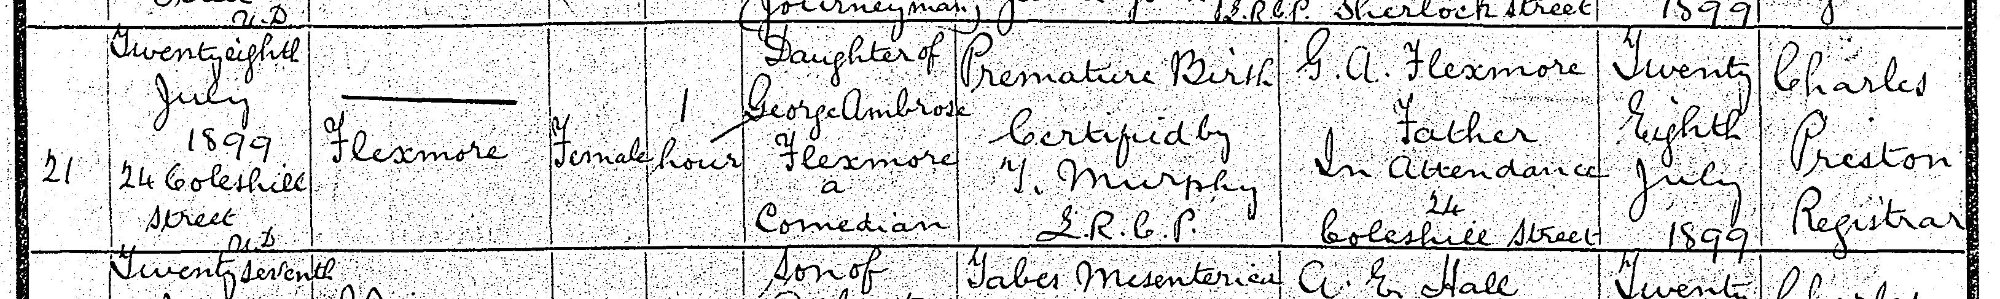 (Journeyman)
L.R.C.P. Sherlock Street
1899
U.D
21
Twenty eighth
July
1899
24 Coleshill
Street
U.D
Flexmore
Female
1
hour
Daughter of
George Ambrose
Flexmore
a
Comedian
Premature Birth
Certified by
T. Murphy
L.R.C.P.
G. A. Flexmore
Father
In Attendance
24
Coleshill Street
Twenty
Eighth
July
1899
Charles
Preston
Registrar
Twenty seventh
Son of
Tabes Mesenterica
A. E. Hall
Twenty
Charles